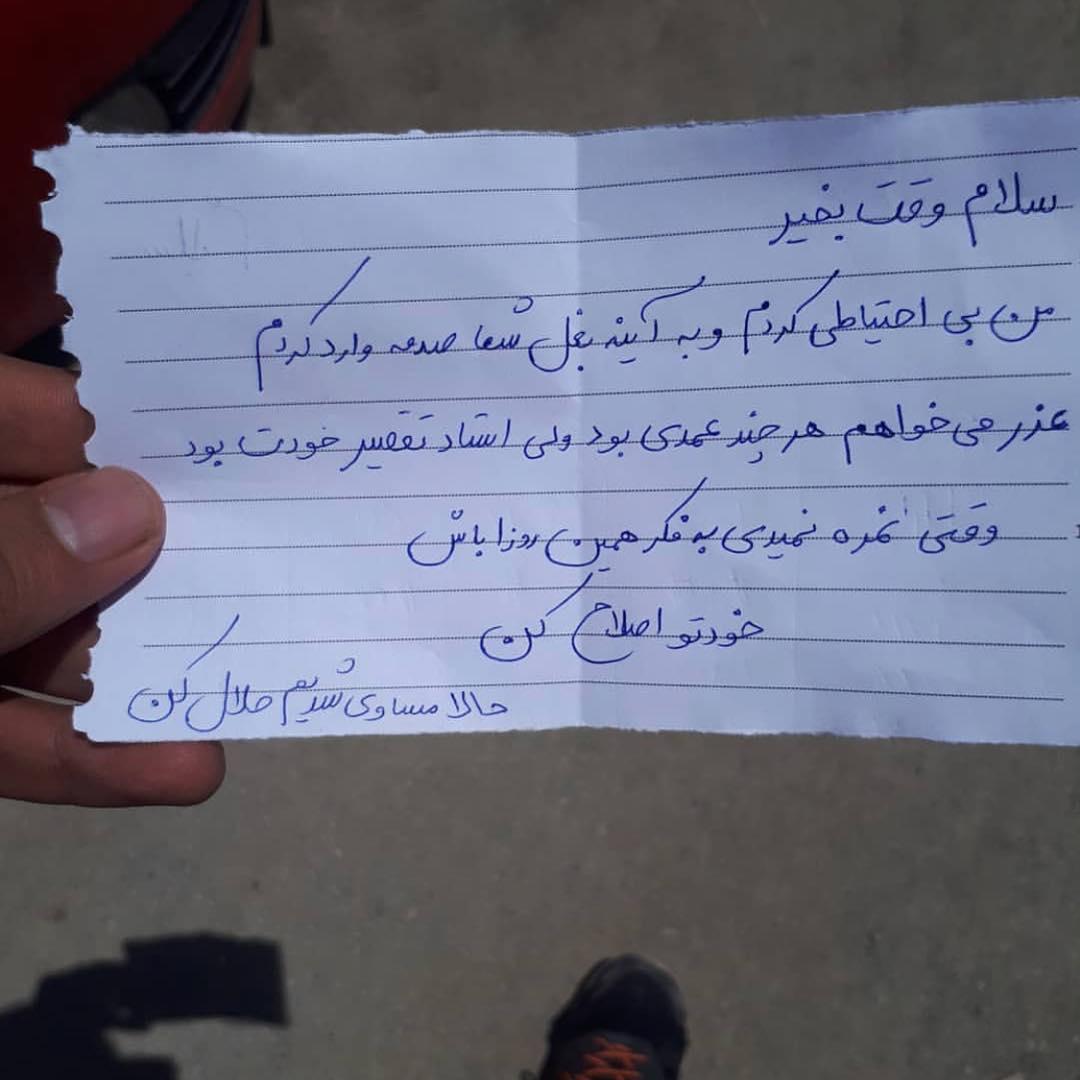 سلام وقت بخیر
من بی احتیاطی کردم و به آینه بغل شما صدمه وارد کردم
عذر می‌خواهم هر چند عمدی بود ولی استاد تقصیر خودت بود
وقتی نمره نمیدی به فکر همین روزا باش
خودتو اصلاح کن
حالا مساوی شدیم حلال کن